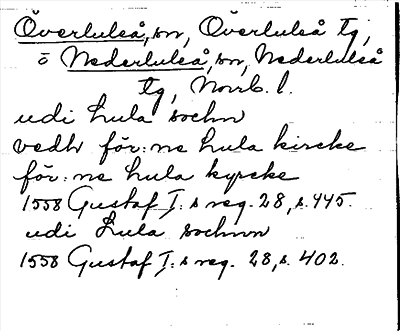 Överluleå, sn, Överluleå tg,
o Nederluleå, sn, Nederluleå
tg, Norrb. l.
udi Lula sochn
vedh för:ne Lula kircke
för:ne Lula kyrcke
1558 Gustaf I:s reg. 28, s. 445.
udi Lula sochnn
1558 Gustaf I:s reg. 28, s. 402.